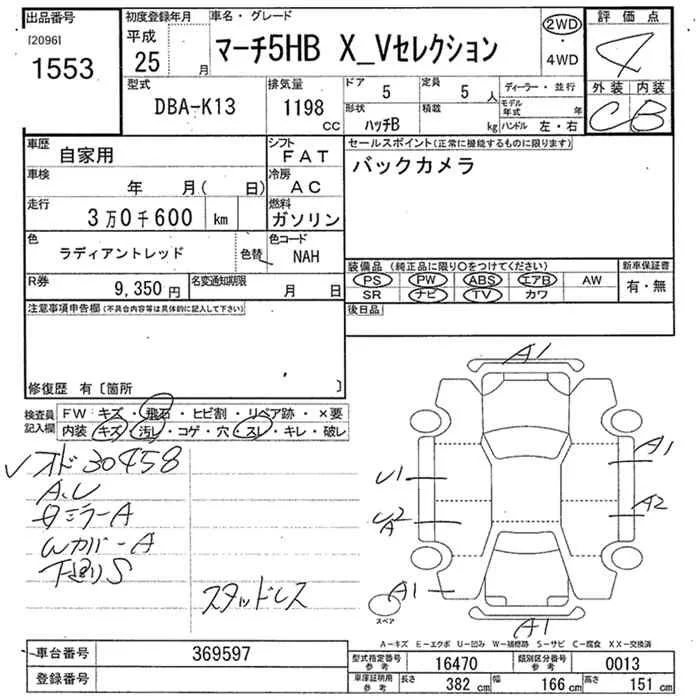 出品番号
[2096]
1553
初度登録年月
平成
25 月
車名・グレード
マーチ5HB X_Vセレクション
2WD
・
4WD
評価点
4
外装 内装
C B
型式
DBA-K13
排気量
1198
CC
ドア
5
定員
5 人
形状
ハッチB
積載
kg
ディーラー・並行
モデル年式 年
ハンドル 左・右
車歴
自家用
シフト
FAT
車検
年 月( 日)
冷房
AC
走行
3万0千600 km
燃料
ガソリン
色
ラディアントレッド
色替
色コード
NAH
R券
9,350 円
名変通知期限
月 日
セールスポイント(正常に機能するものに限ります)
バックカメラ
装備品(純正品に限り○をつけてください)
PS PW ABS エアB AW
SR ナビ TV カワ
新車保証書
有・無
注意事項申告欄(不具合内容等は具体的に記入して下さい)
後日品
修復歴 有〔箇所 〕
検査員記入欄
FW キズ・飛石・ヒビ割・リペア跡・×要
内装 キズ・汚レ・コゲ・穴・スレ・キレ・破レ
✓オド30458
A.U
ミラーA
WカバーA
下廻りS
スタッドレス
A1
A1
U1
A2
A1
A1
スペア
A-キズ E-エクボ U-凹み W-補修跡 S-サビ C-腐食 XX-交換済
車台番号
369597
登録番号
型式指定番号参考
16470
類別区分番号参考
0013
車庫証明用参考
長さ 382 cm
幅 166 cm
高さ 151 cm